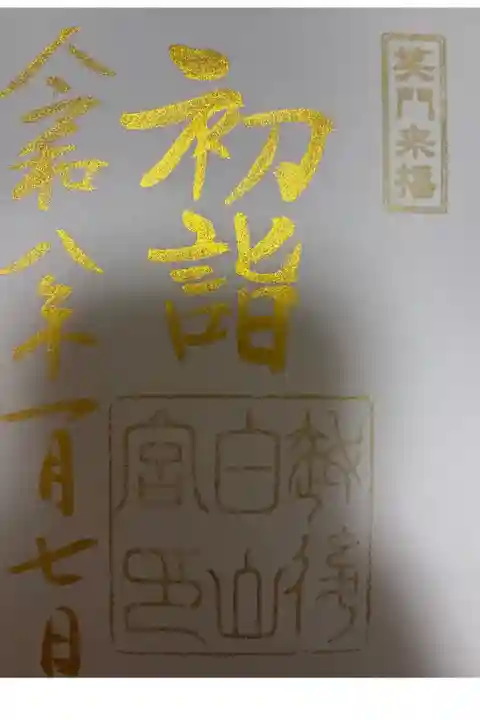 笑門来福
初詣
越後
白山
宮印
令和八年一月七日